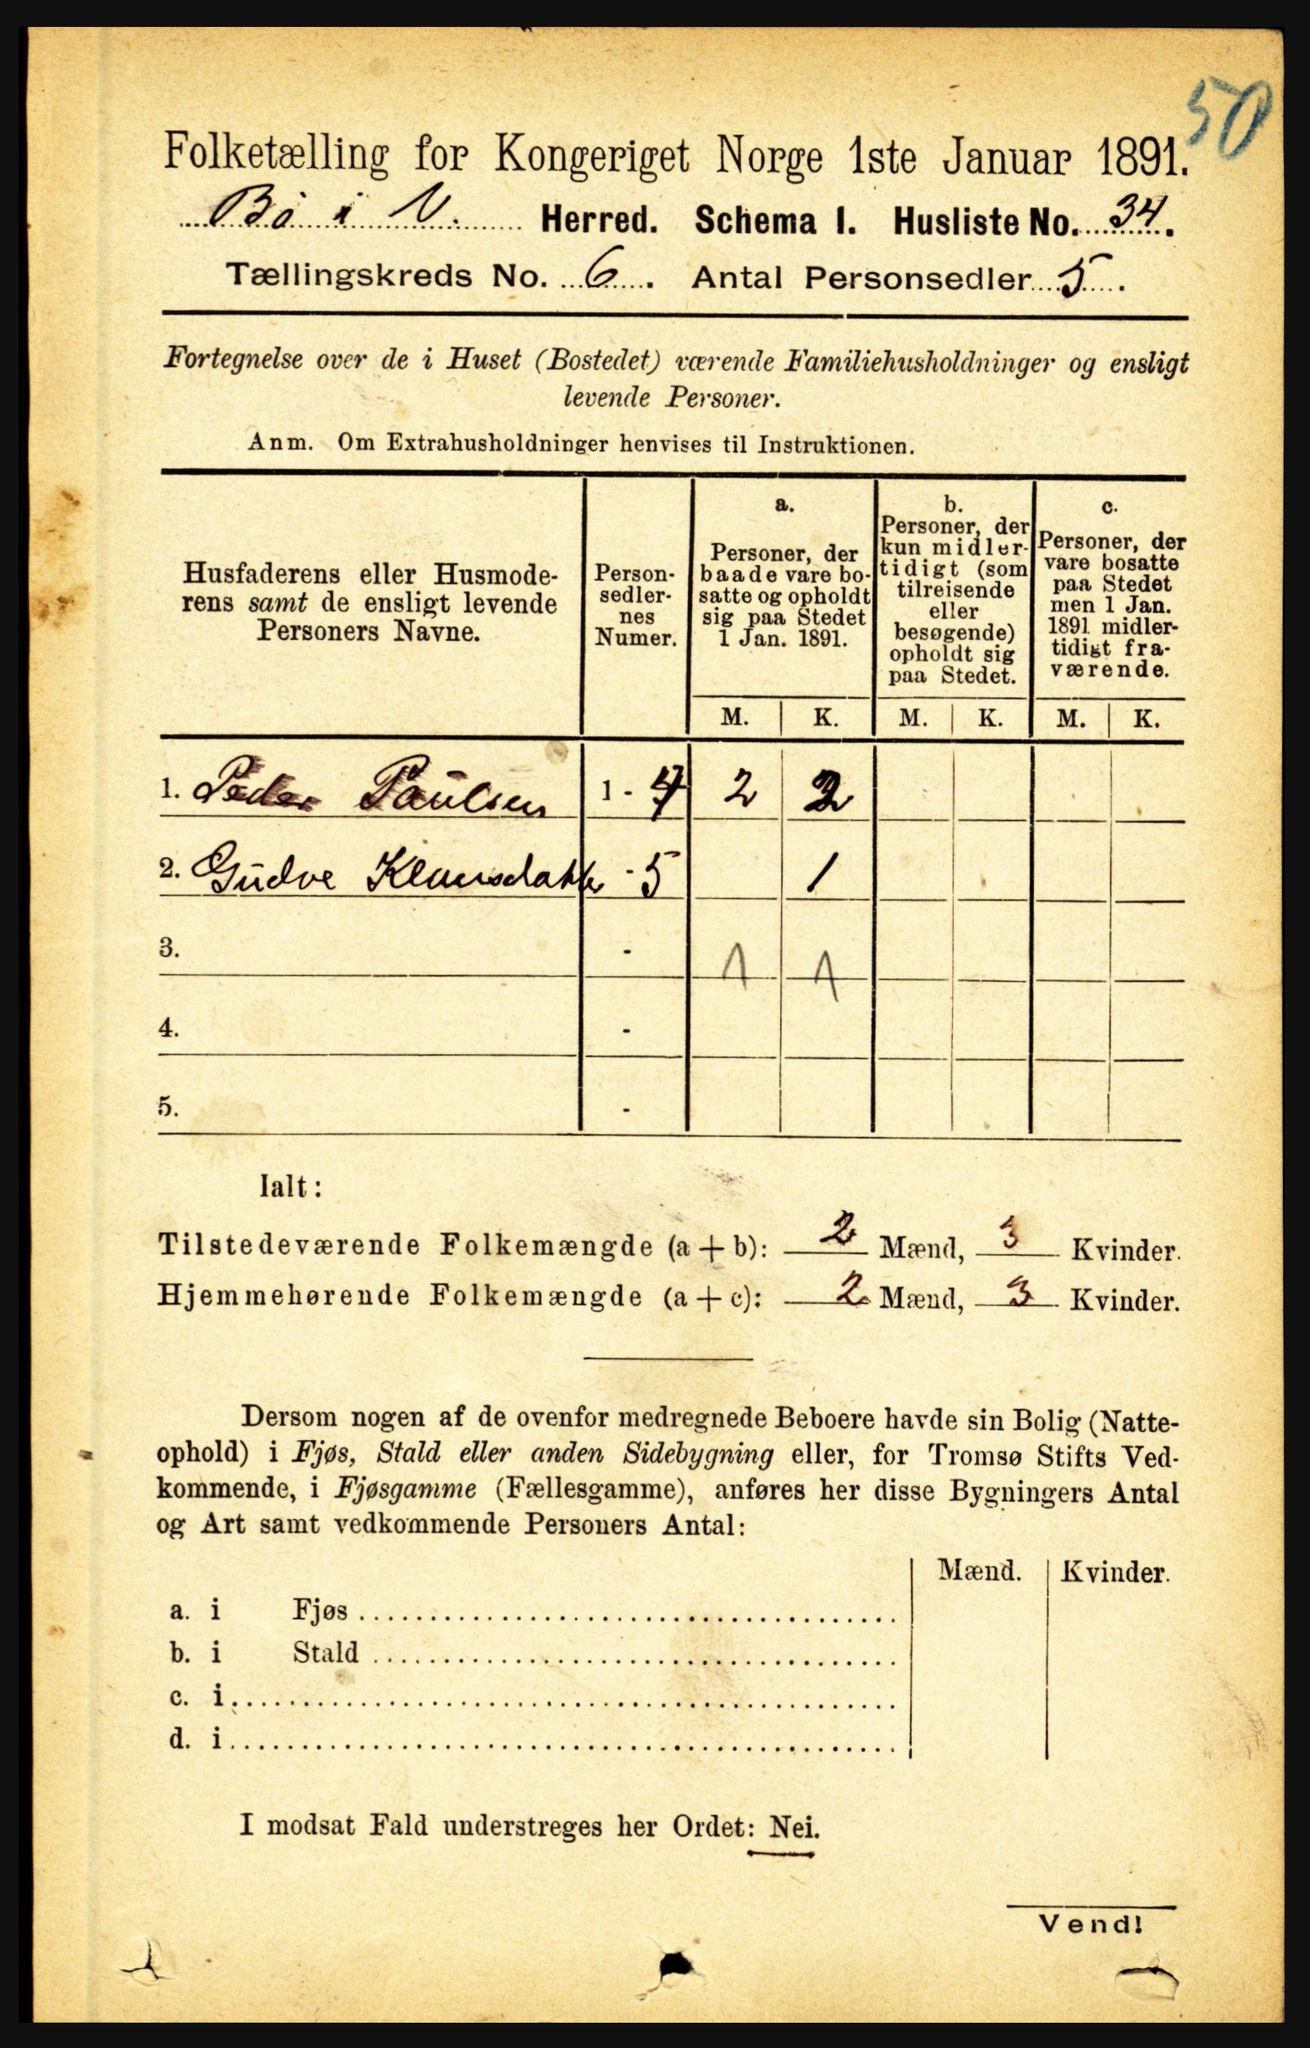 50
Folketælling for Kongeriget Norge 1ste Januar 1891.
Bö i V. Herred. Schema 1. Husliste No. 34.
Tællingskreds No. 6. Antal Personsedler 5.
Fortegnelse over de i Huset (Bostedet) værende Familiehusholdninger og ensligt
levende Personer.
Anm. Om Extrahusholdninger henvises til Instruktionen.
Husfaderens eller Husmode-
rens samt de ensligt levende
Personers Navne.
Person-
sedler-
nes
Numer.
a.
Personer, der
baade vare bo-
satte og opholdt
sig paa Stedet
1 Jan. 1891.
b.
Personer, der
kun midler-
tidigt (som
tilreisende
eller
besøgende)
opholdt sig
paa Stedet.
c.
Personer, der
vare bosatte
paa Stedet
men 1 Jan.
1891 midler-
tidigt fra-
værende.
M. K. M. K. M. K.
1. Peder Paulsen 1 - 4 2 2
2. Gudve Klausdatter - 5 1
3. - 1 1
4. -
5. -
Ialt:
Tilstedeværende Folkemængde (a + b): 2 Mænd, 3 Kvinder.
Hjemmehørende Folkemængde (a + c): 2 Mænd, 3 Kvinder.
Dersom nogen af de ovenfor medregnede Beboere havde sin Bolig (Natte-
ophold) i Fjøs, Stald eller anden Sidebygning eller, for Tromsø Stifts Ved-
kommende, i Fjøsgamme (Fællesgamme), anføres her disse Bygningers Antal
og Art samt vedkommende Personers Antal:
Mænd. Kvinder.
a. i Fjøs
b. i Stald
c. i
d. i
I modsat Fald understreges her Ordet: Nei.
Vend!